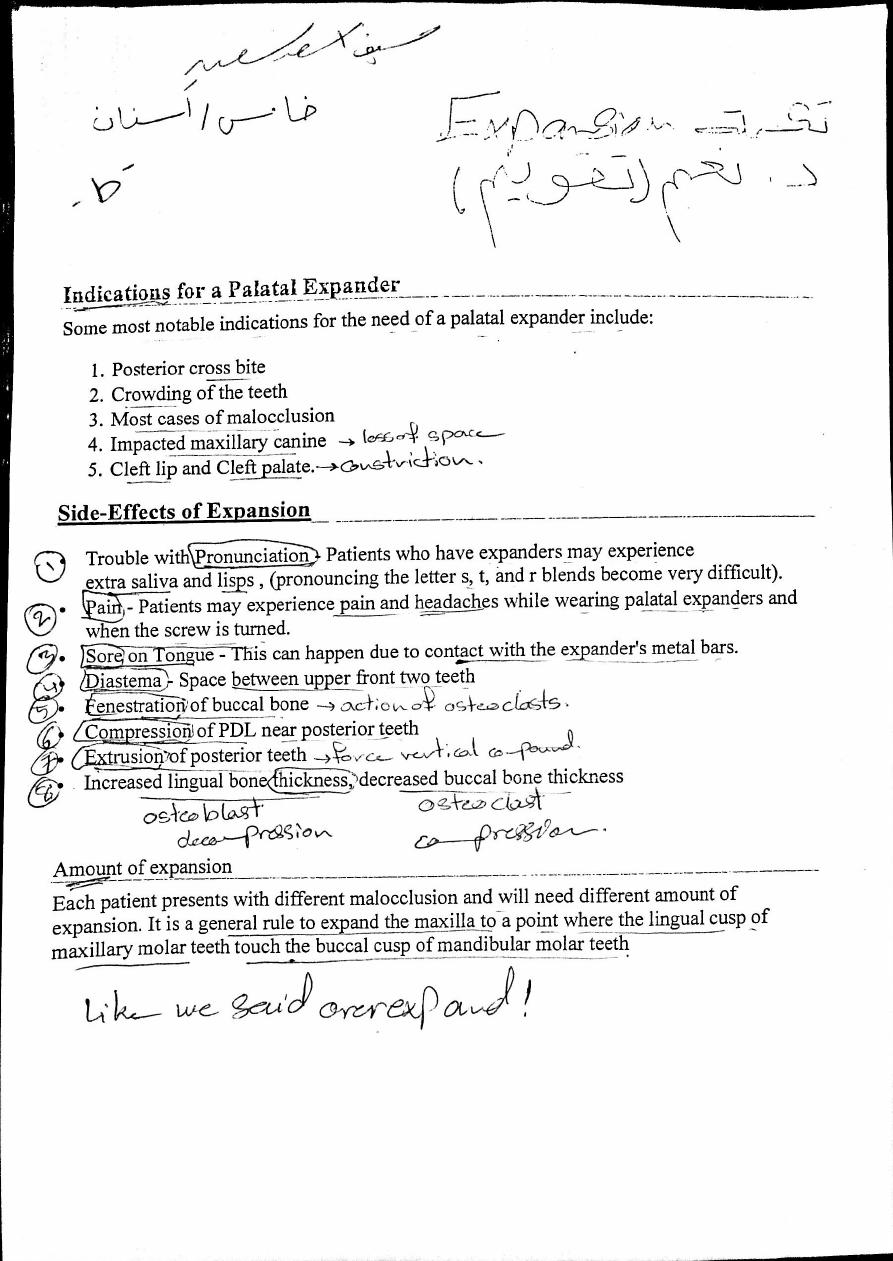 خامس / أسنان
تكملة Expansion
د. نغم (تقويم)
Indications for a Palatal Expander
Some most notable indications for the need of a palatal expander include:
1. Posterior cross bite
2. Crowding of the teeth
3. Most cases of malocclusion
4. Impacted maxillary canine → loss of space
5. Cleft lip and Cleft palate. → constriction.
Side-Effects of Expansion
① Trouble with Pronunciation - Patients who have expanders may experience
extra saliva and lisps , (pronouncing the letter s, t, and r blends become very difficult).
② • Pain - Patients may experience pain and headaches while wearing palatal expanders and
when the screw is turned.
③ • Sore on Tongue - This can happen due to contact with the expander's metal bars.
④ • Diastema - Space between upper front two teeth
⑤ • Fenestration of buccal bone → action of osteoclasts.
⑥ • Compression of PDL near posterior teeth
⑦ • Extrusion of posterior teeth → force vertical compound.
⑧ • Increased lingual bone thickness, decreased buccal bone thickness
osteoblast osteoclast
decompression compression.
Amount of expansion
Each patient presents with different malocclusion and will need different amount of
expansion. It is a general rule to expand the maxilla to a point where the lingual cusp of
maxillary molar teeth touch the buccal cusp of mandibular molar teeth
Like we said overexpand!